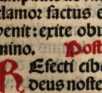 clamor factus e
venit: exite obui
mino. Post
REfecti cibe
deus noste